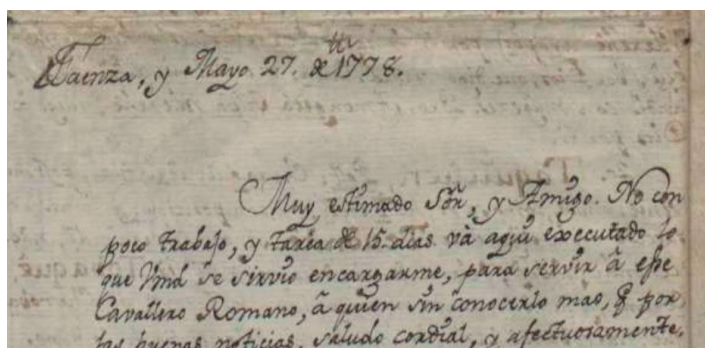 Faenza, y Mayo 27. de 1778.
Muy estimado Sōr, y Amigo. No con
poco trabajo, y tarea de 15. dias va aqui executado lo
que Vmd se sirviò encargarme, para servir â esse
Cavallero Romano, â quien sin conocerlo mas, q̃ por
las buenas noticias, saludo cordial, y afectuosamente.